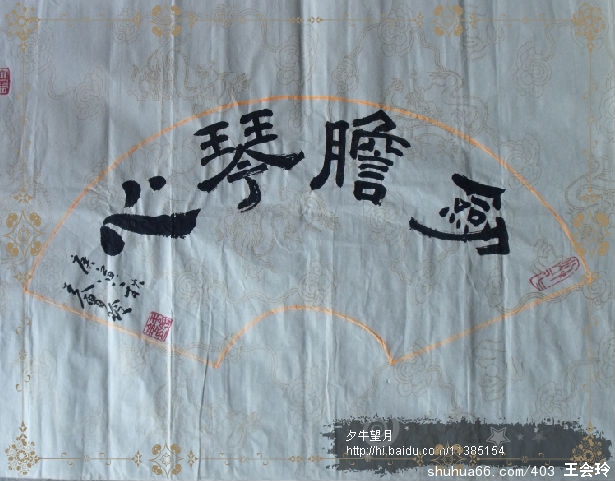 劍膽琴心
庚寅秋
王會玲
夕牛望月
http://hi.baidu.com/11385154
shuhua66.com/403 王会玲